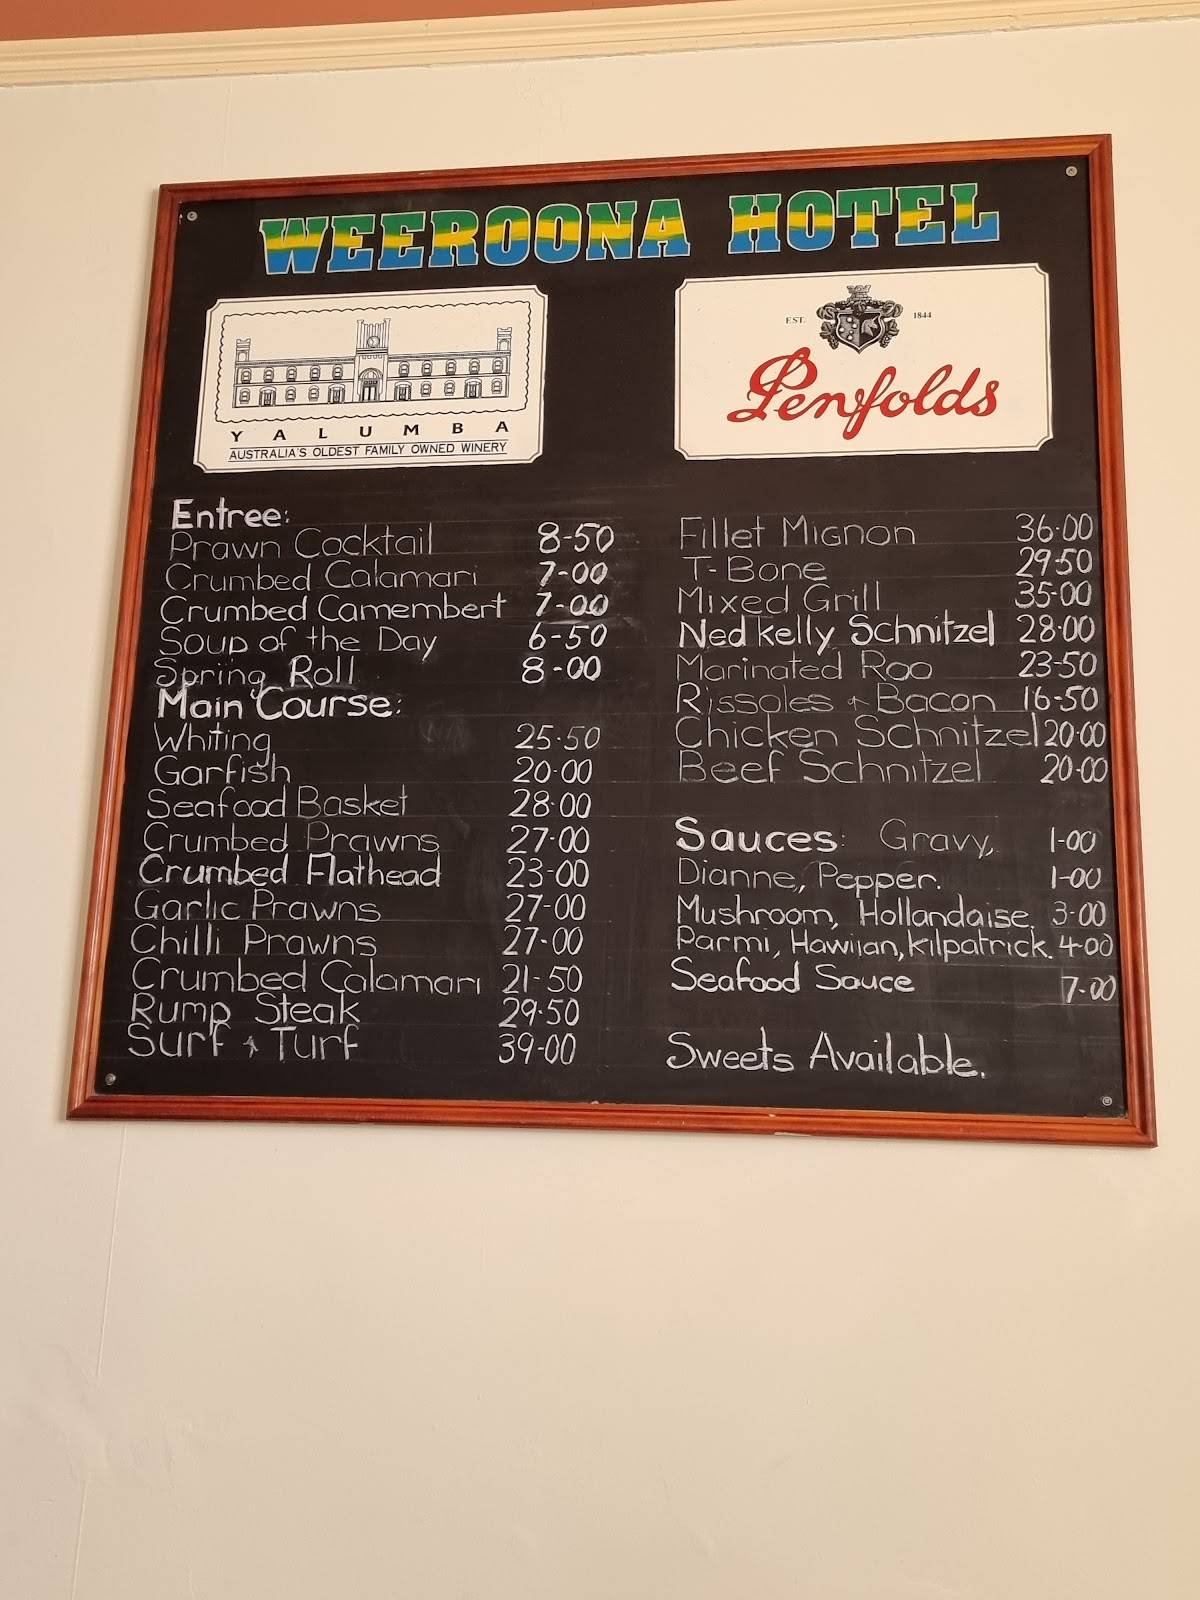 WEEROONA HOTEL
YALUMBA
AUSTRALIA'S OLDEST FAMILY OWNED WINERY
EST. 1844
Penfolds
Entree:
Prawn Cocktail 8-50
Crumbed Calamari 7-00
Crumbed Camembert 7-00
Soup of the Day 6-50
Spring Roll 8-00
Main Course:
Whiting 25.50
Garfish 20.00
Seafood Basket 28.00
Crumbed Prawns 27-00
Crumbed Flathead 23-00
Garlic Prawns 27-00
Chilli Prawns 27-00
Crumbed Calamari 21-50
Rump Steak 29.50
Surf & Turf 39-00
Fillet Mignon 36.00
T-Bone 29.50
Mixed Grill 35.00
Ned Kelly Schnitzel 28.00
Marinated Roo 23-50
Rissoles & Bacon 16-50
Chicken Schnitzel 20.00
Beef Schnitzel 20.00
Sauces: Gravy, 1-00
Dianne, Pepper. 1-00
Mushroom, Hollandaise, 3-00
Parmi, Hawiian, Kilpatrick. 4-00
Seafood Sauce 7-00
Sweets Available.